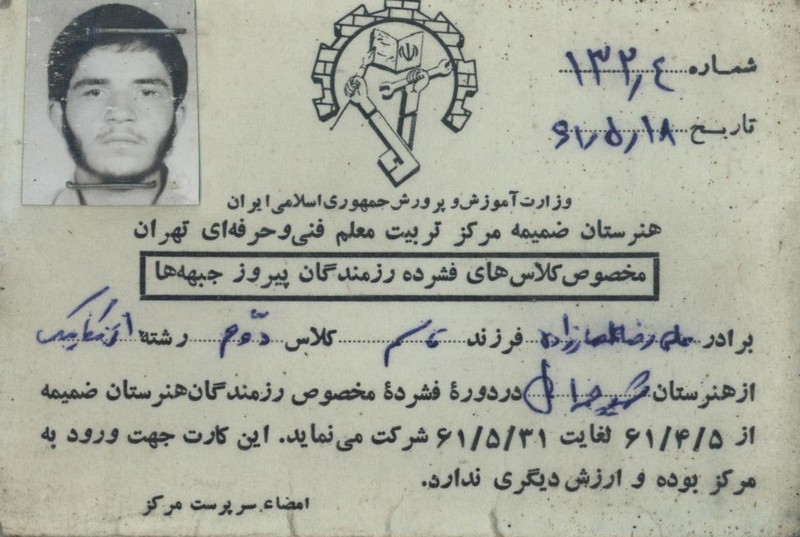 شماره ۱۳۲٫۴
تاریخ ۶۱٫۵٫۱۸
وزارت آموزش و پرورش جمهوری اسلامی ایران
هنرستان ضمیمه مرکز تربیت معلم فنی و حرفه‌ای تهران
مخصوص کلاس‌های فشرده رزمندگان پیروز جبهه‌ها
برادر علی رضا فرزند قاسم کلاس دوّم رشته
از هنرستان شهید در دورهٔ فشردهٔ مخصوص رزمندگان هنرستان ضمیمه
از ۶۱/۴/۵ لغایت ۶۱/۵/۳۱ شرکت می‌نماید. این کارت جهت ورود به
مرکز بوده و ارزش دیگری ندارد.
امضاء سرپرست مرکز